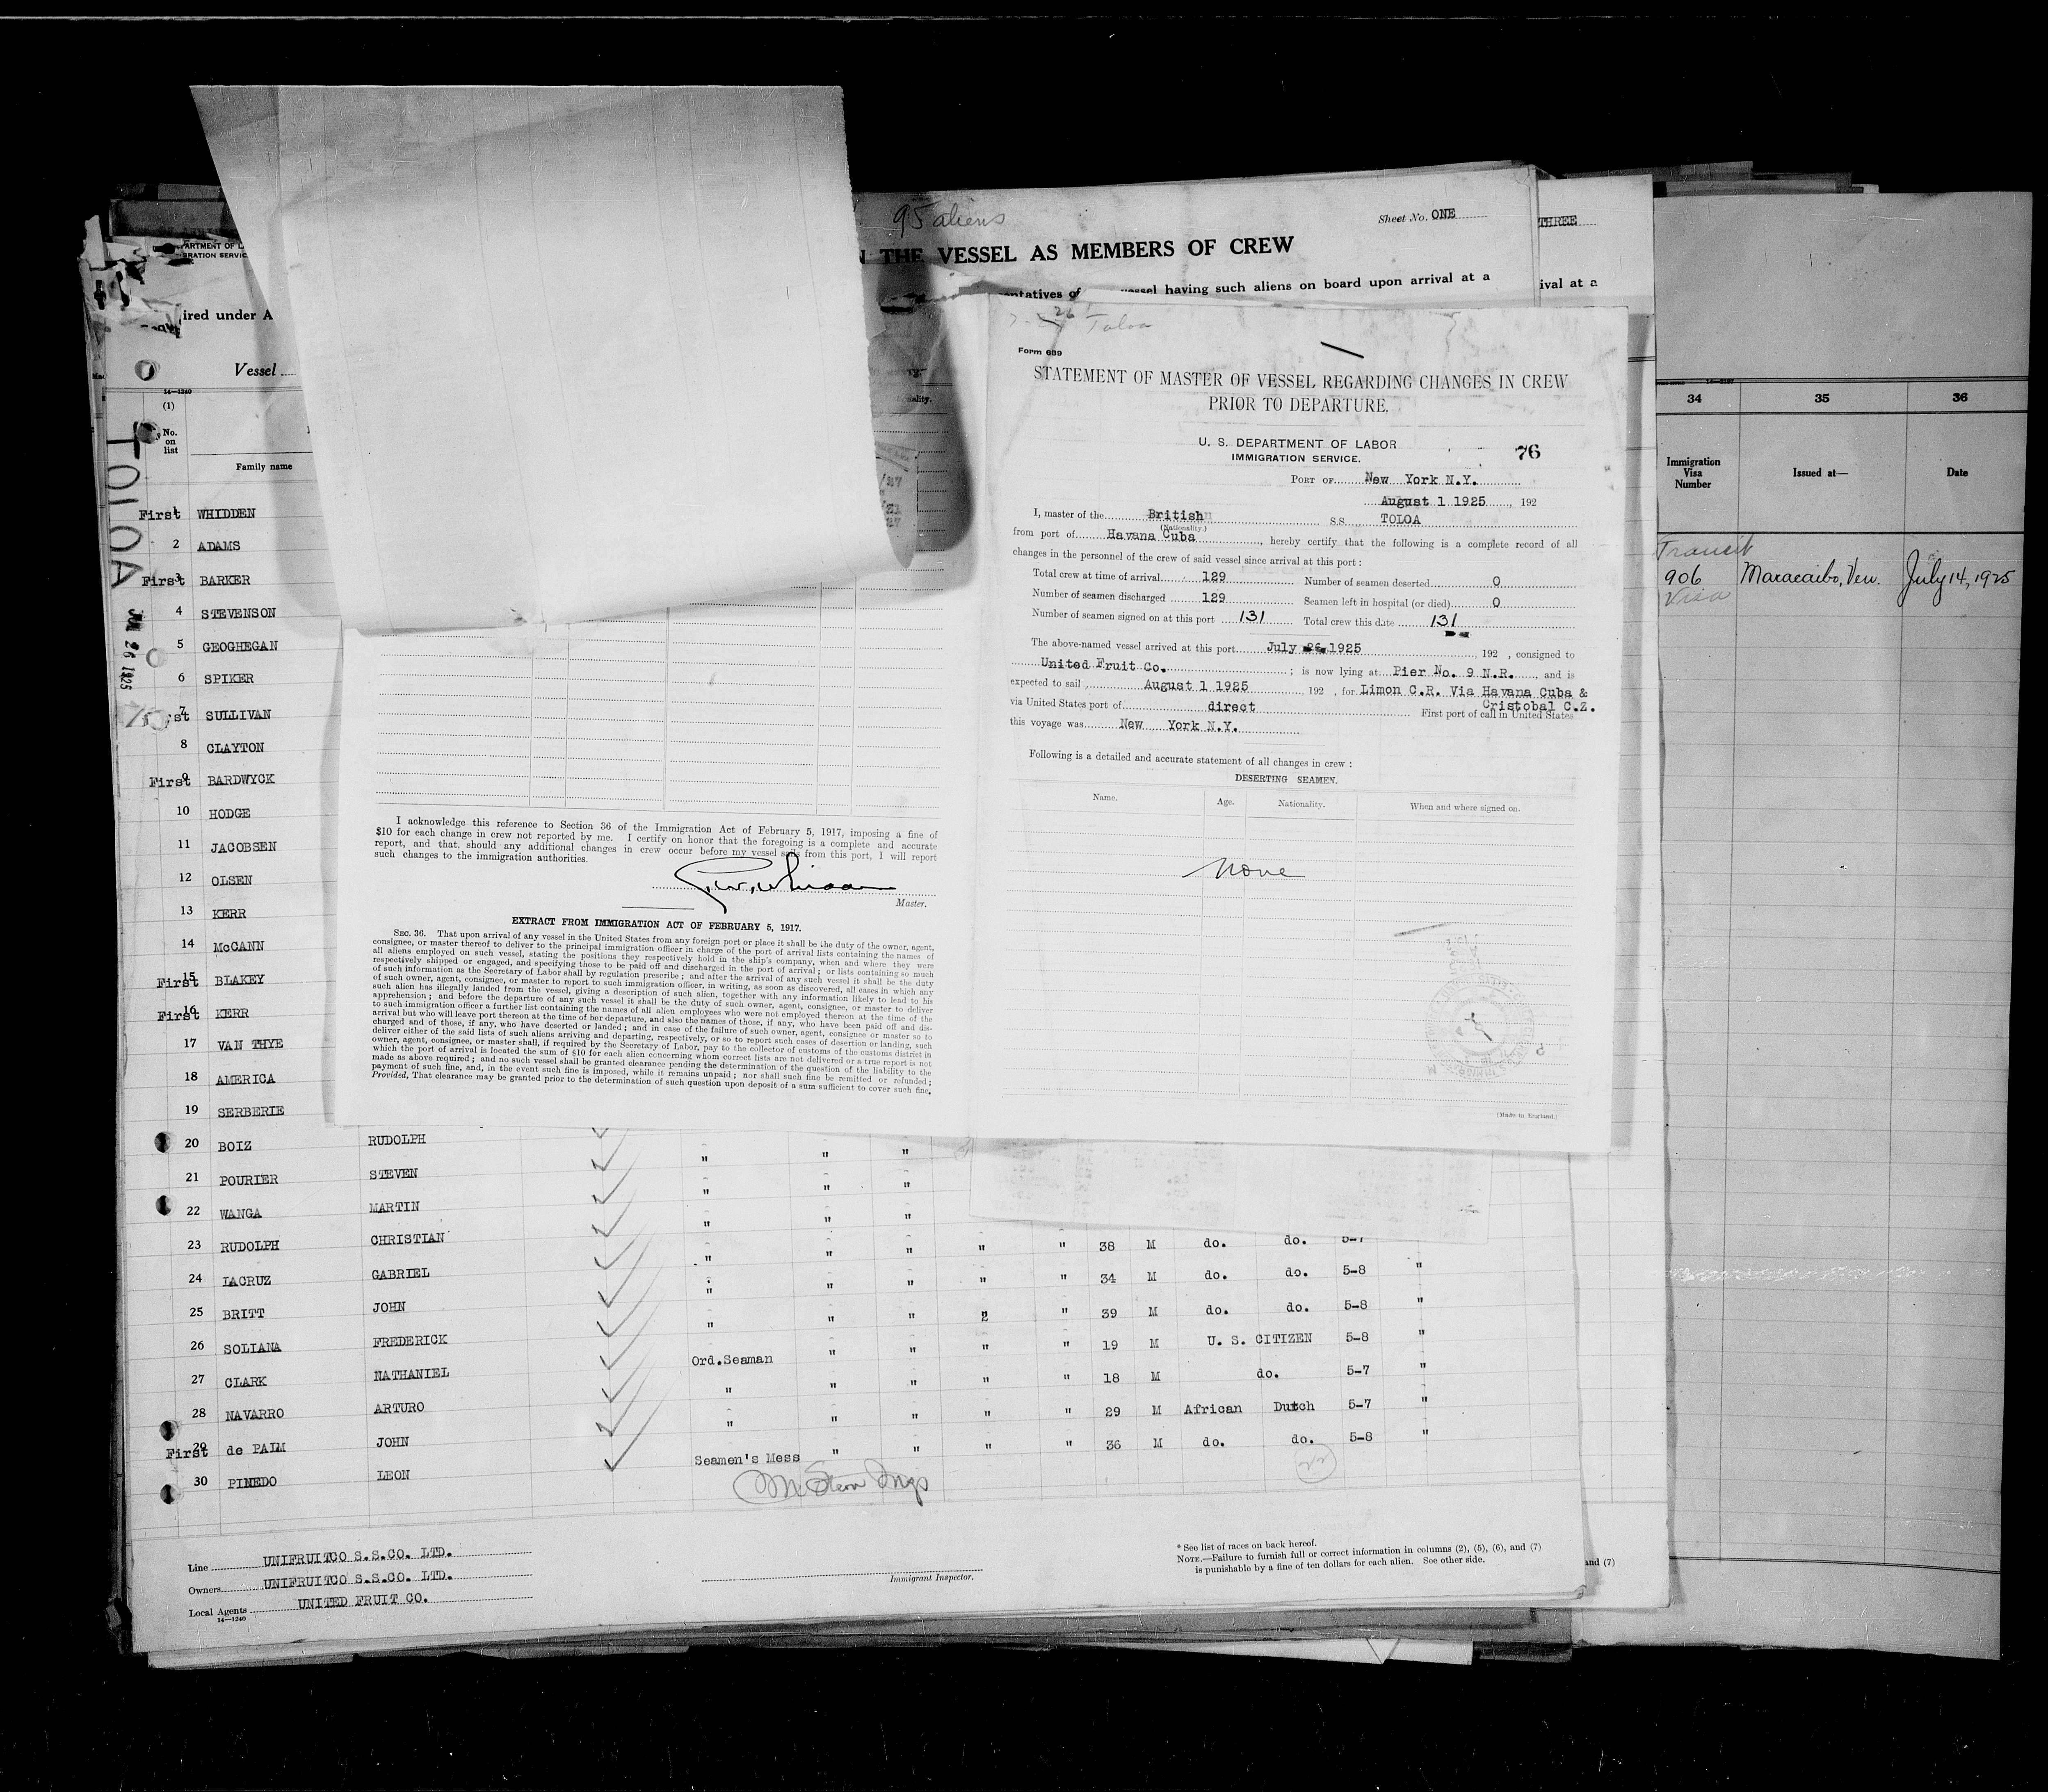 95 aliens
Sheet No. ONE
THREE
THE VESSEL AS MEMBERS OF CREW
vessel having such aliens on board upon arrival at a
ival at a
ired under A
Vessel
14—1240
(1)
No.
on
list
Family name
TOLOA
JUL 26 1925
First 1 WHIDDEN
2 ADAMS
First 3 BARKER
4 STEVENSON
5 GEOGHEGAN
6 SPIKER
7 SULLIVAN
8 CLAYTON
First 9 BARDWYCK
10 HODGE
11 JACOBSEN
12 OLSEN
13 KERR
14 McCANN
First 15 BLAKEY
First 16 KERR
17 VAN THYE
18 AMERICA
19 SERBERIE
20 BOIZ RUDOLPH
21 POURIER STEVEN " " "
22 WANGA MARTIN " " "
23 RUDOLPH CHRISTIAN " " " " " 38 M do. do. 5-7
24 LACRUZ GABRIEL " " " " " 34 M do. do. 5-8 "
25 BRITT JOHN " " " " " 39 M do. do. 5-8 "
26 SOLIANA FREDERICK " " " " " 19 M U. S. CITIZEN 5-8 "
27 CLARK NATHANIEL Ord.Seaman " " " " 18 M do. 5-7 "
28 NAVARRO ARTURO " " " " " 29 M African Dutch 5-7 "
First 29 de PALM JOHN " " " " " 36 M do. do. 5-8 "
30 PINEDO LEON Seamen's Mess
Line UNIFRUITCO S.S.CO. LTD.
Owners UNIFRUITCO S.S.CO. LTD.
Local Agents UNITED FRUIT CO.
14—1240
Immigrant Inspector.
* See list of races on back hereof.
NOTE.—Failure to furnish full or correct information in columns (2), (5), (6), and (7)
is punishable by a fine of ten dollars for each alien. See other side.
and (7)
I acknowledge this reference to Section 36 of the Immigration Act of February 5, 1917, imposing a fine of
$10 for each change in crew not reported by me. I certify on honor that the foregoing is a complete and accurate
report, and that should any additional changes in crew occur before my vessel sails from this port, I will report
such changes to the immigration authorities.
Master.
EXTRACT FROM IMMIGRATION ACT OF FEBRUARY 5, 1917.
SEC. 36. That upon arrival of any vessel in the United States from any foreign port or place it shall be the duty of the owner, agent,
consignee, or master thereof to deliver to the principal immigration officer in charge of the port of arrival lists containing the names of
all aliens employed on such vessel, stating the positions they respectively hold in the ship's company, when and where they were
respectively shipped or engaged, and specifying those to be paid off and discharged in the port of arrival; or lists containing so much
of such information as the Secretary of Labor shall by regulation prescribe; and after the arrival of any such vessel it shall be the duty
of such owner, agent, consignee, or master to report to such immigration officer, in writing, as soon as discovered, all cases in which any
such alien has illegally landed from the vessel, giving a description of such alien, together with any information likely to lead to his
apprehension; and before the departure of any such vessel it shall be the duty of such owner, agent, consignee, or master to deliver
to such immigration officer a further list containing the names of all alien employees who were not employed thereon at the time of the
arrival but who will leave port thereon at the time of her departure, and also the names of those, if any, who have been paid off and dis-
charged and of those, if any, who have deserted or landed; and in case of the failure of such owner, agent, consignee or master so to
deliver either of the said lists of such aliens arriving and departing, respectively, or so to report such cases of desertion or landing, such
owner, agent, consignee, or master shall, if required by the Secretary of Labor, pay to the collector of customs of the customs district in
which the port of arrival is located the sum of $10 for each alien concerning whom correct lists are not delivered or a true report is not
made as above required; and no such vessel shall be granted clearance pending the determination of the question of the liability to the
payment of such fine, and, in the event such fine is imposed, while it remains unpaid; nor shall such fine be remitted or refunded;
Provided, That clearance may be granted prior to the determination of such question upon deposit of a sum sufficient to cover such fine.
26 Toloa
Form 689
STATEMENT OF MASTER OF VESSEL REGARDING CHANGES IN CREW
PRIOR TO DEPARTURE.
U. S. DEPARTMENT OF LABOR
IMMIGRATION SERVICE.
76
PORT OF New York N.Y.
August 1 1925, 192
I, master of the British S.S. TOLOA
(Nationality.)
from port of Havana Cuba, hereby certify that the following is a complete record of all
changes in the personnel of the crew of said vessel since arrival at this port:
Total crew at time of arrival 129 Number of seamen deserted 0
Number of seamen discharged 129 Seamen left in hospital (or died) 0
Number of seamen signed on at this port 131 Total crew this date 131
The above-named vessel arrived at this port July 26 1925, 192 , consigned to
United Fruit Co. ; is now lying at Pier No. 9 N.R., and is
expected to sail August 1 1925, 192 , for Limon C.R. Via Havana Cuba &
Cristobal C.Z.
via United States port of direct First port of call in United States
this voyage was New York N.Y.
Following is a detailed and accurate statement of all changes in crew:
DESERTING SEAMEN.
Name. Age. Nationality. When and where signed on.
None
(Made in England.)
34 35 36
Immigration
Visa
Number
Issued at—
Date
Transit
906 Maracaibo, Ven. July 14, 1925
Visa